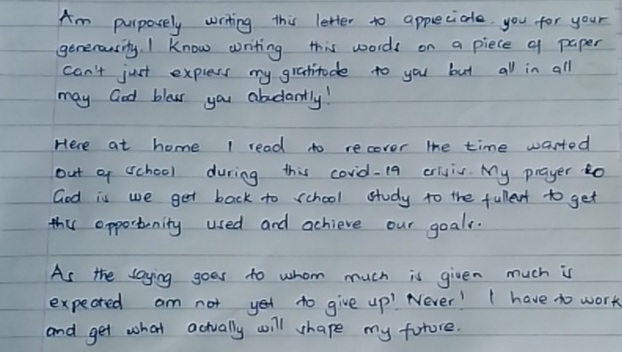 Am purposely writing this letter to appreciate you for your
generousity. I know writing this words on a piece of paper
can't just express my gratitude to you but all in all
may God bless you abudantly!
Here at home I read to recover the time wasted
out of school during this covid-19 crisis. My prayer to
God is we get back to school study to the fullest to get
this opportunity used and achieve our goals.
As the saying goes to whom much is given much is
expected am not yet to give up! Never! I have to work
and get what actually will shape my future.